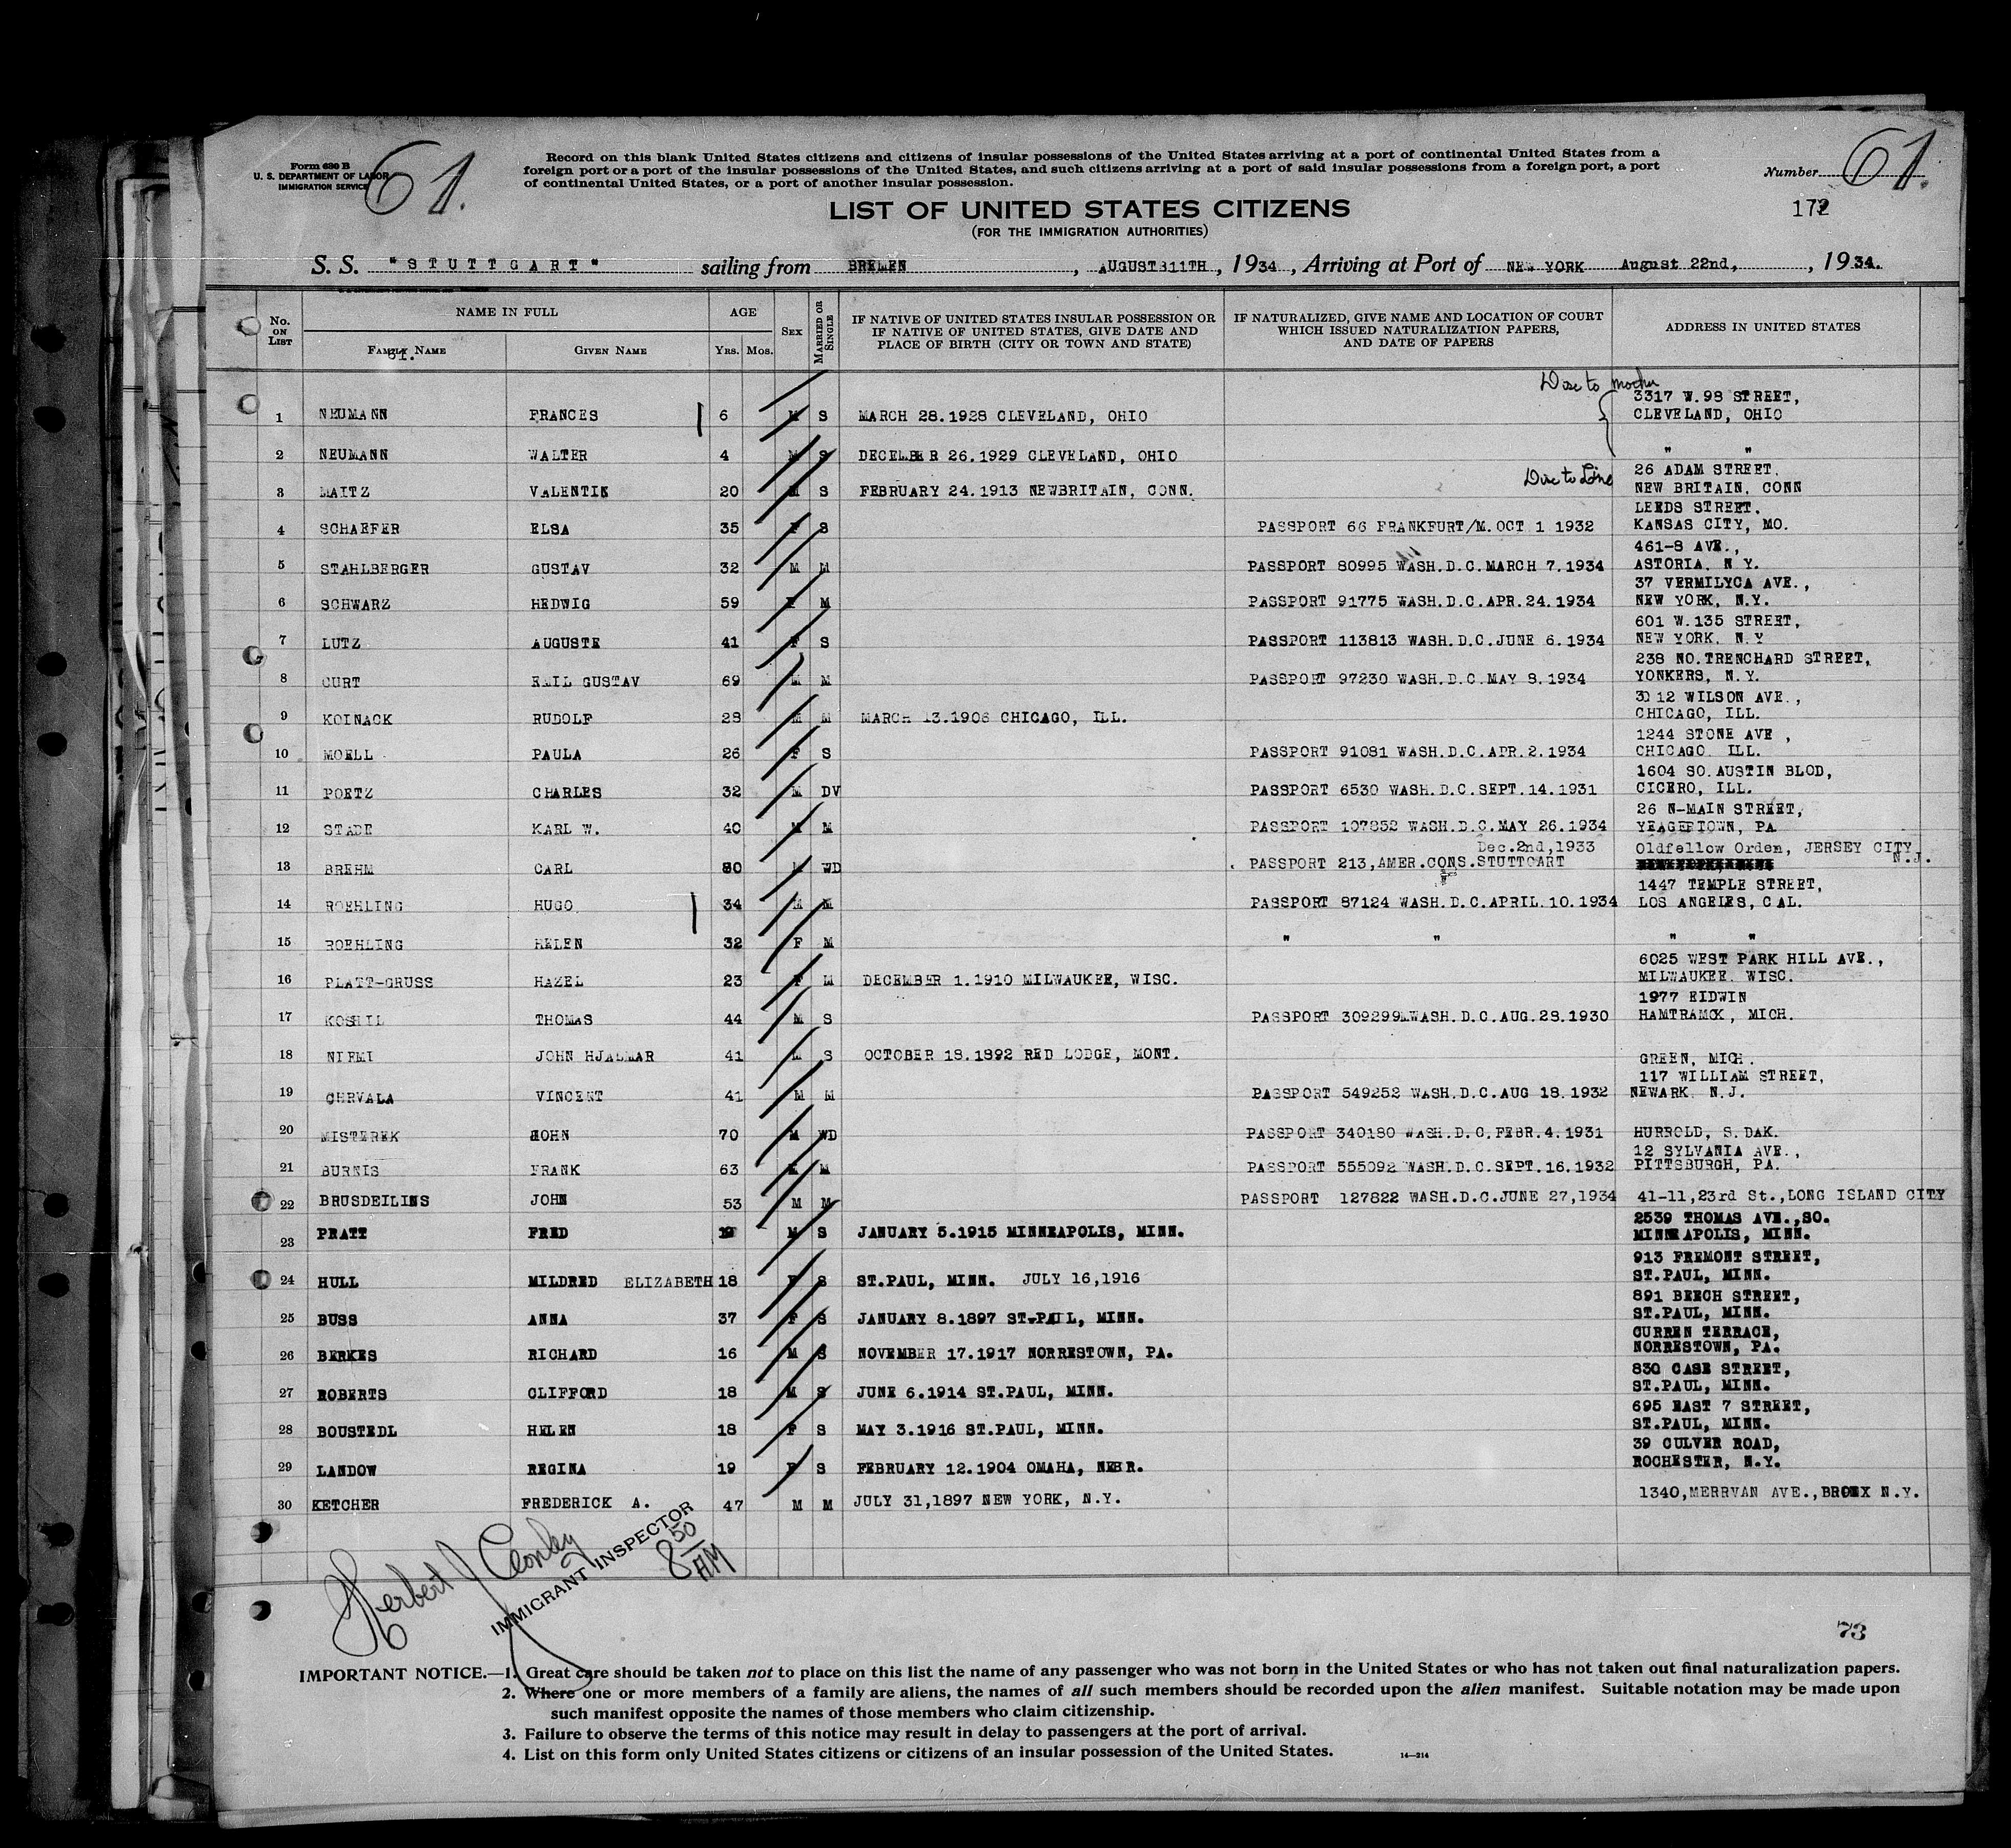 Form 630 B
U. S. DEPARTMENT OF LABOR
IMMIGRATION SERVICE
61.
Record on this blank United States citizens and citizens of insular possessions of the United States arriving at a port of continental United States from a
foreign port or a port of the insular possessions of the United States, and such citizens arriving at a port of said insular possessions from a foreign port, a port
of continental United States, or a port of another insular possession.
Number 61.
LIST OF UNITED STATES CITIZENS
(FOR THE IMMIGRATION AUTHORITIES)
172
S. S. "STUTTGART" sailing from BREMEN, AUGUST 11TH, 1934, Arriving at Port of NEW YORK August 22nd, , 1934.
No. ON LIST NAME IN FULL AGE SEX MARRIED OR SINGLE IF NATIVE OF UNITED STATES INSULAR POSSESSION OR IF NATIVE OF UNITED STATES, GIVE DATE AND PLACE OF BIRTH (CITY OR TOWN AND STATE) IF NATURALIZED, GIVE NAME AND LOCATION OF COURT WHICH ISSUED NATURALIZATION PAPERS, AND DATE OF PAPERS ADDRESS IN UNITED STATES
FAMILY NAME GIVEN NAME YRS. MOS.
61.
Disc to mother
3317 W.98 STREET,
1 NEUMANN FRANCES 6 M S MARCH 28.1928 CLEVELAND, OHIO CLEVELAND, OHIO
2 NEUMANN WALTER 4 M S DECEMBER 26.1929 CLEVELAND, OHIO " "
Disc to Line 26 ADAM STREET,
3 MAITZ VALENTIN 20 M S FEBRUARY 24.1913 NEWBRITAIN, CONN. NEW BRITAIN, CONN
LEEDS STREET.
4 SCHAEFER ELSA 35 F S PASSPORT 66 FRANKFURT/M.OCT 1 1932 KANSAS CITY, MO.
461-8 AVE.,
5 STAHLBERGER GUSTAV 32 M M PASSPORT 80995 WASH.D.C.MARCH 7.1934 ASTORIA. N Y.
37 VERMILYCA AVE.,
6 SCHWARZ HEDWIG 59 F M PASSPORT 91775 WASH.D.C.APR.24.1934 NEW YORK, N.Y.
601 W.135 STREET,
7 LUTZ AUGUSTE 41 F S PASSPORT 113813 WASH.D.C.JUNE 6.1934 NEW YORK, N.Y
238 NO.TRENCHARD STREET,
8 CURT EMIL GUSTAV 69 M M PASSPORT 97230 WASH.D.C.MAY 8.1934 YONKERS, N.Y.
3012 WILSON AVE.,
9 KOINACK RUDOLF 28 M M MARCH 13.1906 CHICAGO, ILL. CHICAGO, ILL.
1244 STONE AVE ,
10 MOELL PAULA 26 F S PASSPORT 91081 WASH.D.C.APR.2.1934 CHICAGO. ILL.
1604 SO.AUSTIN BLOD,
11 POETZ CHARLES 32 M DV PASSPORT 6530 WASH.D.C.SEPT.14.1931 CICERO, ILL.
26 N-MAIN STREET,
12 STADE KARL W. 40 M M PASSPORT 107852 WASH.D.C.MAY 26.1934 YEAGERTOWN, PA
Dec.2nd,1933 Oldfellow Orden, JERSEY CITY
13 BREHM CARL 80 M WD PASSPORT 213,AMER.CONS.STUTTGART N.J.
1447 TEMPLE STREET,
14 ROEHLING HUGO 34 M M PASSPORT 87124 WASH.D.C.APRIL.10.1934 LOS ANGELES, CAL.
15 ROEHLING HELEN 32 F M " " " "
6025 WEST PARK HILL AVE.,
16 PLATT-GRUSS HAZEL 23 F M DECEMBER 1.1910 MILWAUKEE, WISC. MILWAUKEE. WISC.
1977 EIDWIN
17 KOSHIL THOMAS 44 M S PASSPORT 309299 WASH.D.C.AUG.28.1930 HAMTRAMCK, MICH.
18 NIEMI JOHN HJALMAR 41 M S OCTOBER 18.1892 RED LODGE, MONT. GREEN, MICH.
117 WILLIAM STREET,
19 CHRVALA VINCENT 41 M M PASSPORT 549252 WASH.D.C.AUG 18.1932 NEWARK. N.J.
20 MISTEREK JOHN 70 M WD PASSPORT 340180 WASH.D.C.FEBR.4.1931 HURROLD, S.DAK.
12 SYLVANIA AVE.,
21 BURNIS FRANK 63 M M PASSPORT 555092 WASH.D.C.SEPT.16.1932 PITTSBURGH, PA.
22 BRUSDEILINS JOHN 53 M M PASSPORT 127822 WASH.D.C.JUNE 27,1934 41-11,23rd St.,LONG ISLAND CITY
2539 THOMAS AVE.,SO.
23 PRATT FRED 19 M S JANUARY 5.1915 MINNEAPOLIS, MINN. MINNEAPOLIS, MINN.
913 FREMONT STREET,
24 HULL MILDRED ELIZABETH 18 F S ST.PAUL, MINN. JULY 16,1916 ST.PAUL, MINN.
891 BEECH STREET,
25 BUSS ANNA 37 F S JANUARY 8.1897 ST-PAUL, MINN. ST.PAUL, MINN.
CURREN TERRACE,
26 BERKES RICHARD 16 M S NOVEMBER 17.1917 NORRESTOWN, PA. NORRESTOWN, PA.
830 CASE STREET,
27 ROBERTS CLIFFORD 18 M S JUNE 6.1914 ST.PAUL, MINN. ST.PAUL, MINN.
695 EAST 7 STREET,
28 BOUSTEDL HELEN 18 F S MAY 3.1916 ST.PAUL, MINN. ST.PAUL, MINN.
39 CULVER ROAD,
29 LANDOW REGINA 19 F S FEBRUARY 12.1904 OMAHA, NEBR. ROCHESTER, N.Y.
30 KETCHER FREDERICK A. 47 M M JULY 31,1897 NEW YORK, N.Y. 1340,MERRVAN AVE.,BRONX N.Y.
Herbert J Conley
IMMIGRANT INSPECTOR
8 50 AM
73
IMPORTANT NOTICE.—1. Great care should be taken not to place on this list the name of any passenger who was not born in the United States or who has not taken out final naturalization papers.
2. Where one or more members of a family are aliens, the names of all such members should be recorded upon the alien manifest. Suitable notation may be made upon
such manifest opposite the names of those members who claim citizenship.
3. Failure to observe the terms of this notice may result in delay to passengers at the port of arrival.
4. List on this form only United States citizens or citizens of an insular possession of the United States.
14—214